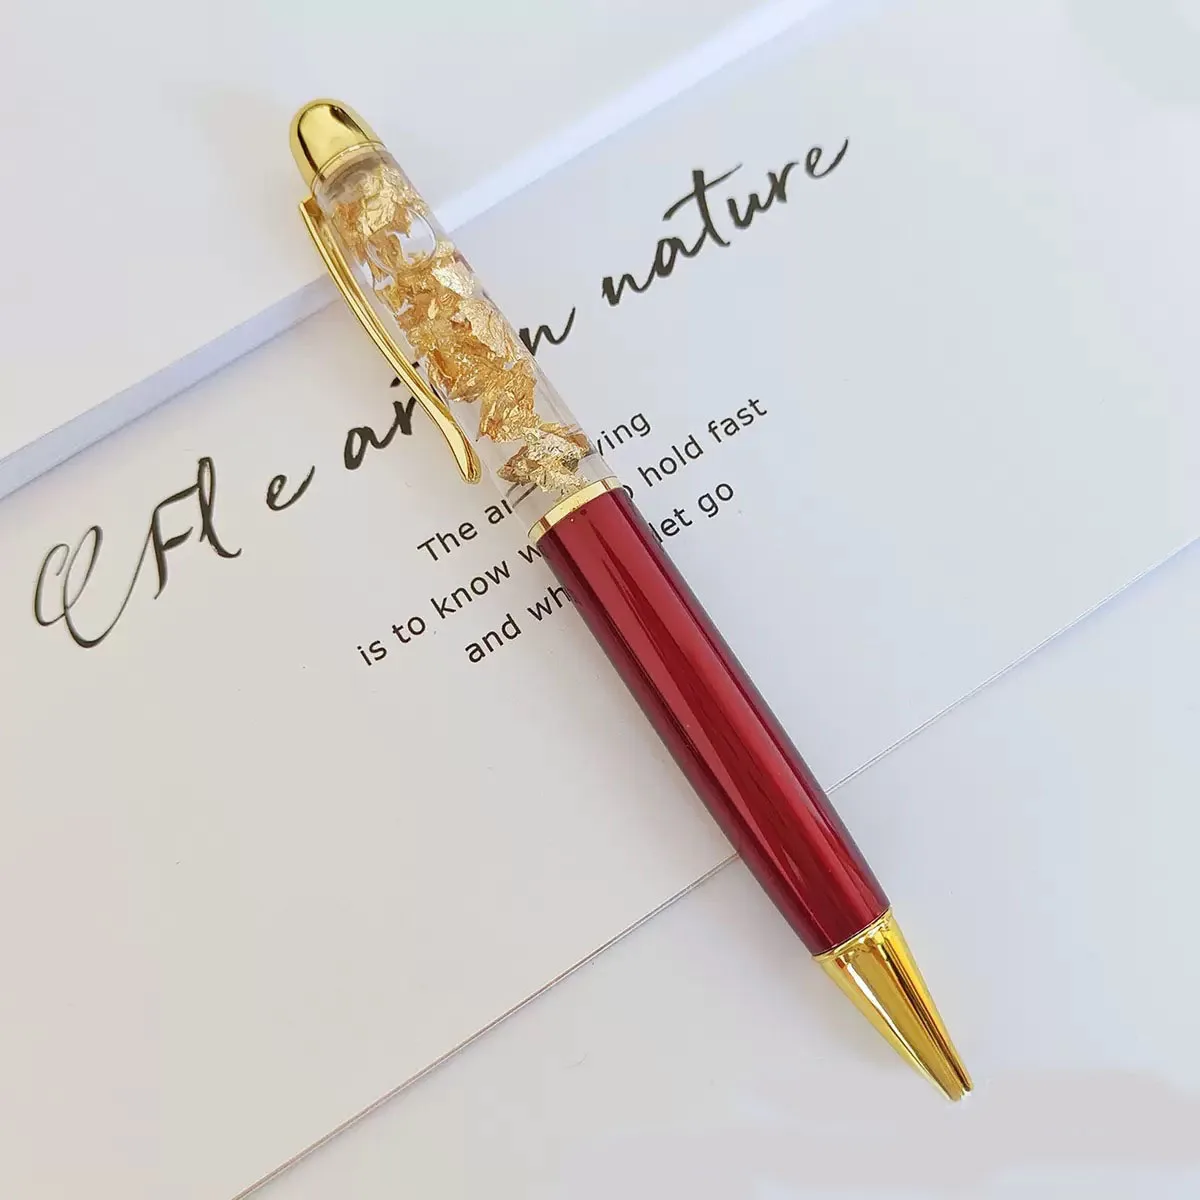 Fl e in nature
The a ying
is to know w hold fast
and wh let go